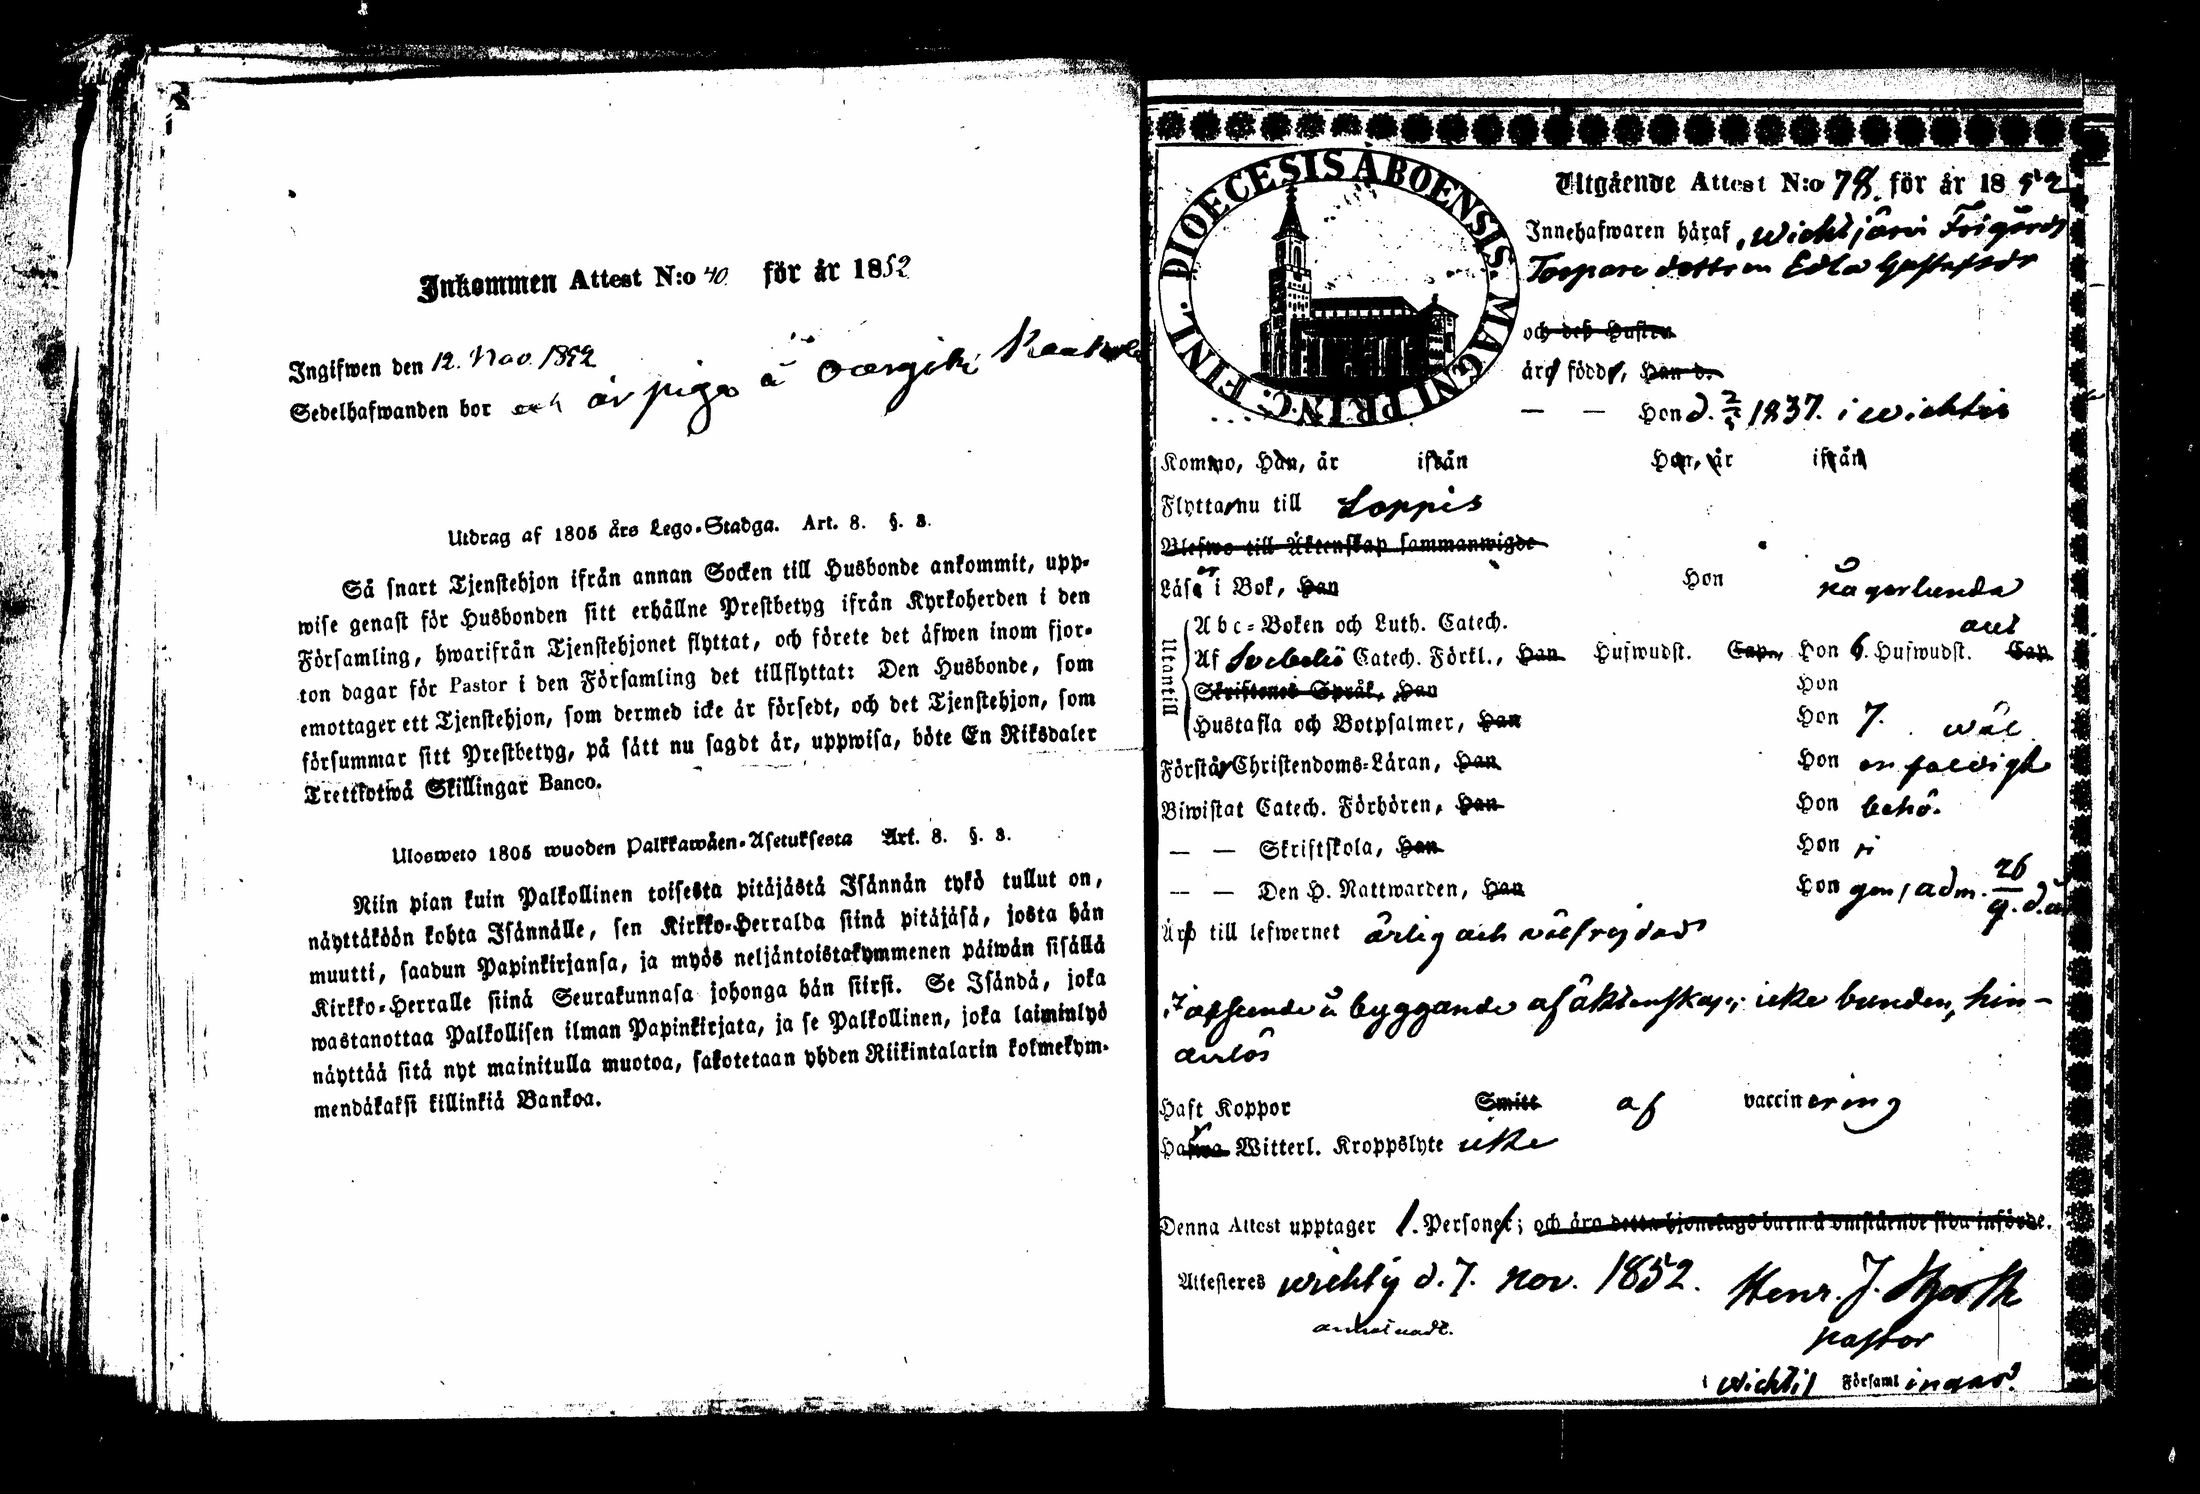 Inkommen Attest N:o 40 för år 1852
Ingifwen den 12. Nov. 1852
Sedelhafwanden bor och är piga å
Utdrag af 1805 års Lego-Stadga. Art. 8. §. 3.
Så snart Tjenstehjon ifrån annan Socken till Husbonde ankommit, upp-
wise genast för Husbonden sitt erhållne Prestbetyg ifrån Kyrkoherden i den
Församling, hwarifrån Tjenstehjonet flyttat, och förete det äfwen inom fjor-
ton dagar för Pastor i den Församling det tillflyttat: Den Husbonde, som
emottager ett Tjenstehjon, som dermed icke är försedt, och det Tjenstehjon, som
försummar sitt Prestbetyg, på sätt nu sagdt är, uppwisa, böte En Riksdaler
Trettiotwå Skillingar Banco.
Ulosweto 1805 wuoden Palkkawäen-Asetuksesta Art. 8. §. 3.
Niin pian kuin Palkollinen toisesta pitäjästä Isännän tykö tullut on,
näyttäköön kohta Isännälle, sen Kirkko-Herralda siinä pitäjäsä, josta hän
muutti, saadun Papinkirjansa, ja myös neljäntoistakymmenen päiwän sisällä
Kirkko-Herralle siinä Seurakunnasa johonga hän siirsi. Se Isändä, joka
wastanottaa Palkollisen ilman Papinkirjata, ja se Palkollinen, joka laiminlyö
näyttää sitä nyt mainitulla muotoa, sakotetaan yhden Riikintalarin kolmekym-
mendäkaksi killinkiä Bankoa.
DIOECESIS ÅBOENSIS. MAGNI PRINC: FINL.
Utgående Attest N:o 78. för år 1852
Innehafwaren häraf, Wichtjärvi Frigårds
Torpare dottren Edla Gustafsdr
och deß Hustru
äro födde, Han d.
— — Hon d. 2/5 1837. i Wichtis
Komne, Han, år ifrån Hon, år ifrån
Flytta nu till Loppis
Blefwo till Äktenskap sammanwigde
Läser i Bok, Han Hon någorlunda
Utantill
Abc-Boken och Luth. Catech.
Af Svebelii Catech. Förkl., Han Hufwudst. Cap., Hon 6. Hufwudst. Cap.
Skriftenes Språk, Han Hon
Hustafla och Botpsalmer, Han Hon 7. wäl
Förstår Christendoms-Läran, Han Hon enfaldigt
Biwistat Catech. Förhören, Han Hon behö.
— — Skriftskola, Han Hon
— — Den H. Nattwarden, Han Hon adm. 26/9. d.å.
Är till lefwernet ärlig och välfrejdad
i afseende å byggande af äktenskap, icke bunden, hin-
derlös
Haft Koppor Smitt af vaccinering
Har Witterl. Kroppslyte icke
Denna Attest upptager 1. Person; och äro detta hjonelags barn å omstående sida införde.
Attesteres Wichtis d. 7. Nov. 1852. Henr. J.
Pastor
i Wichtis Församl ingar.